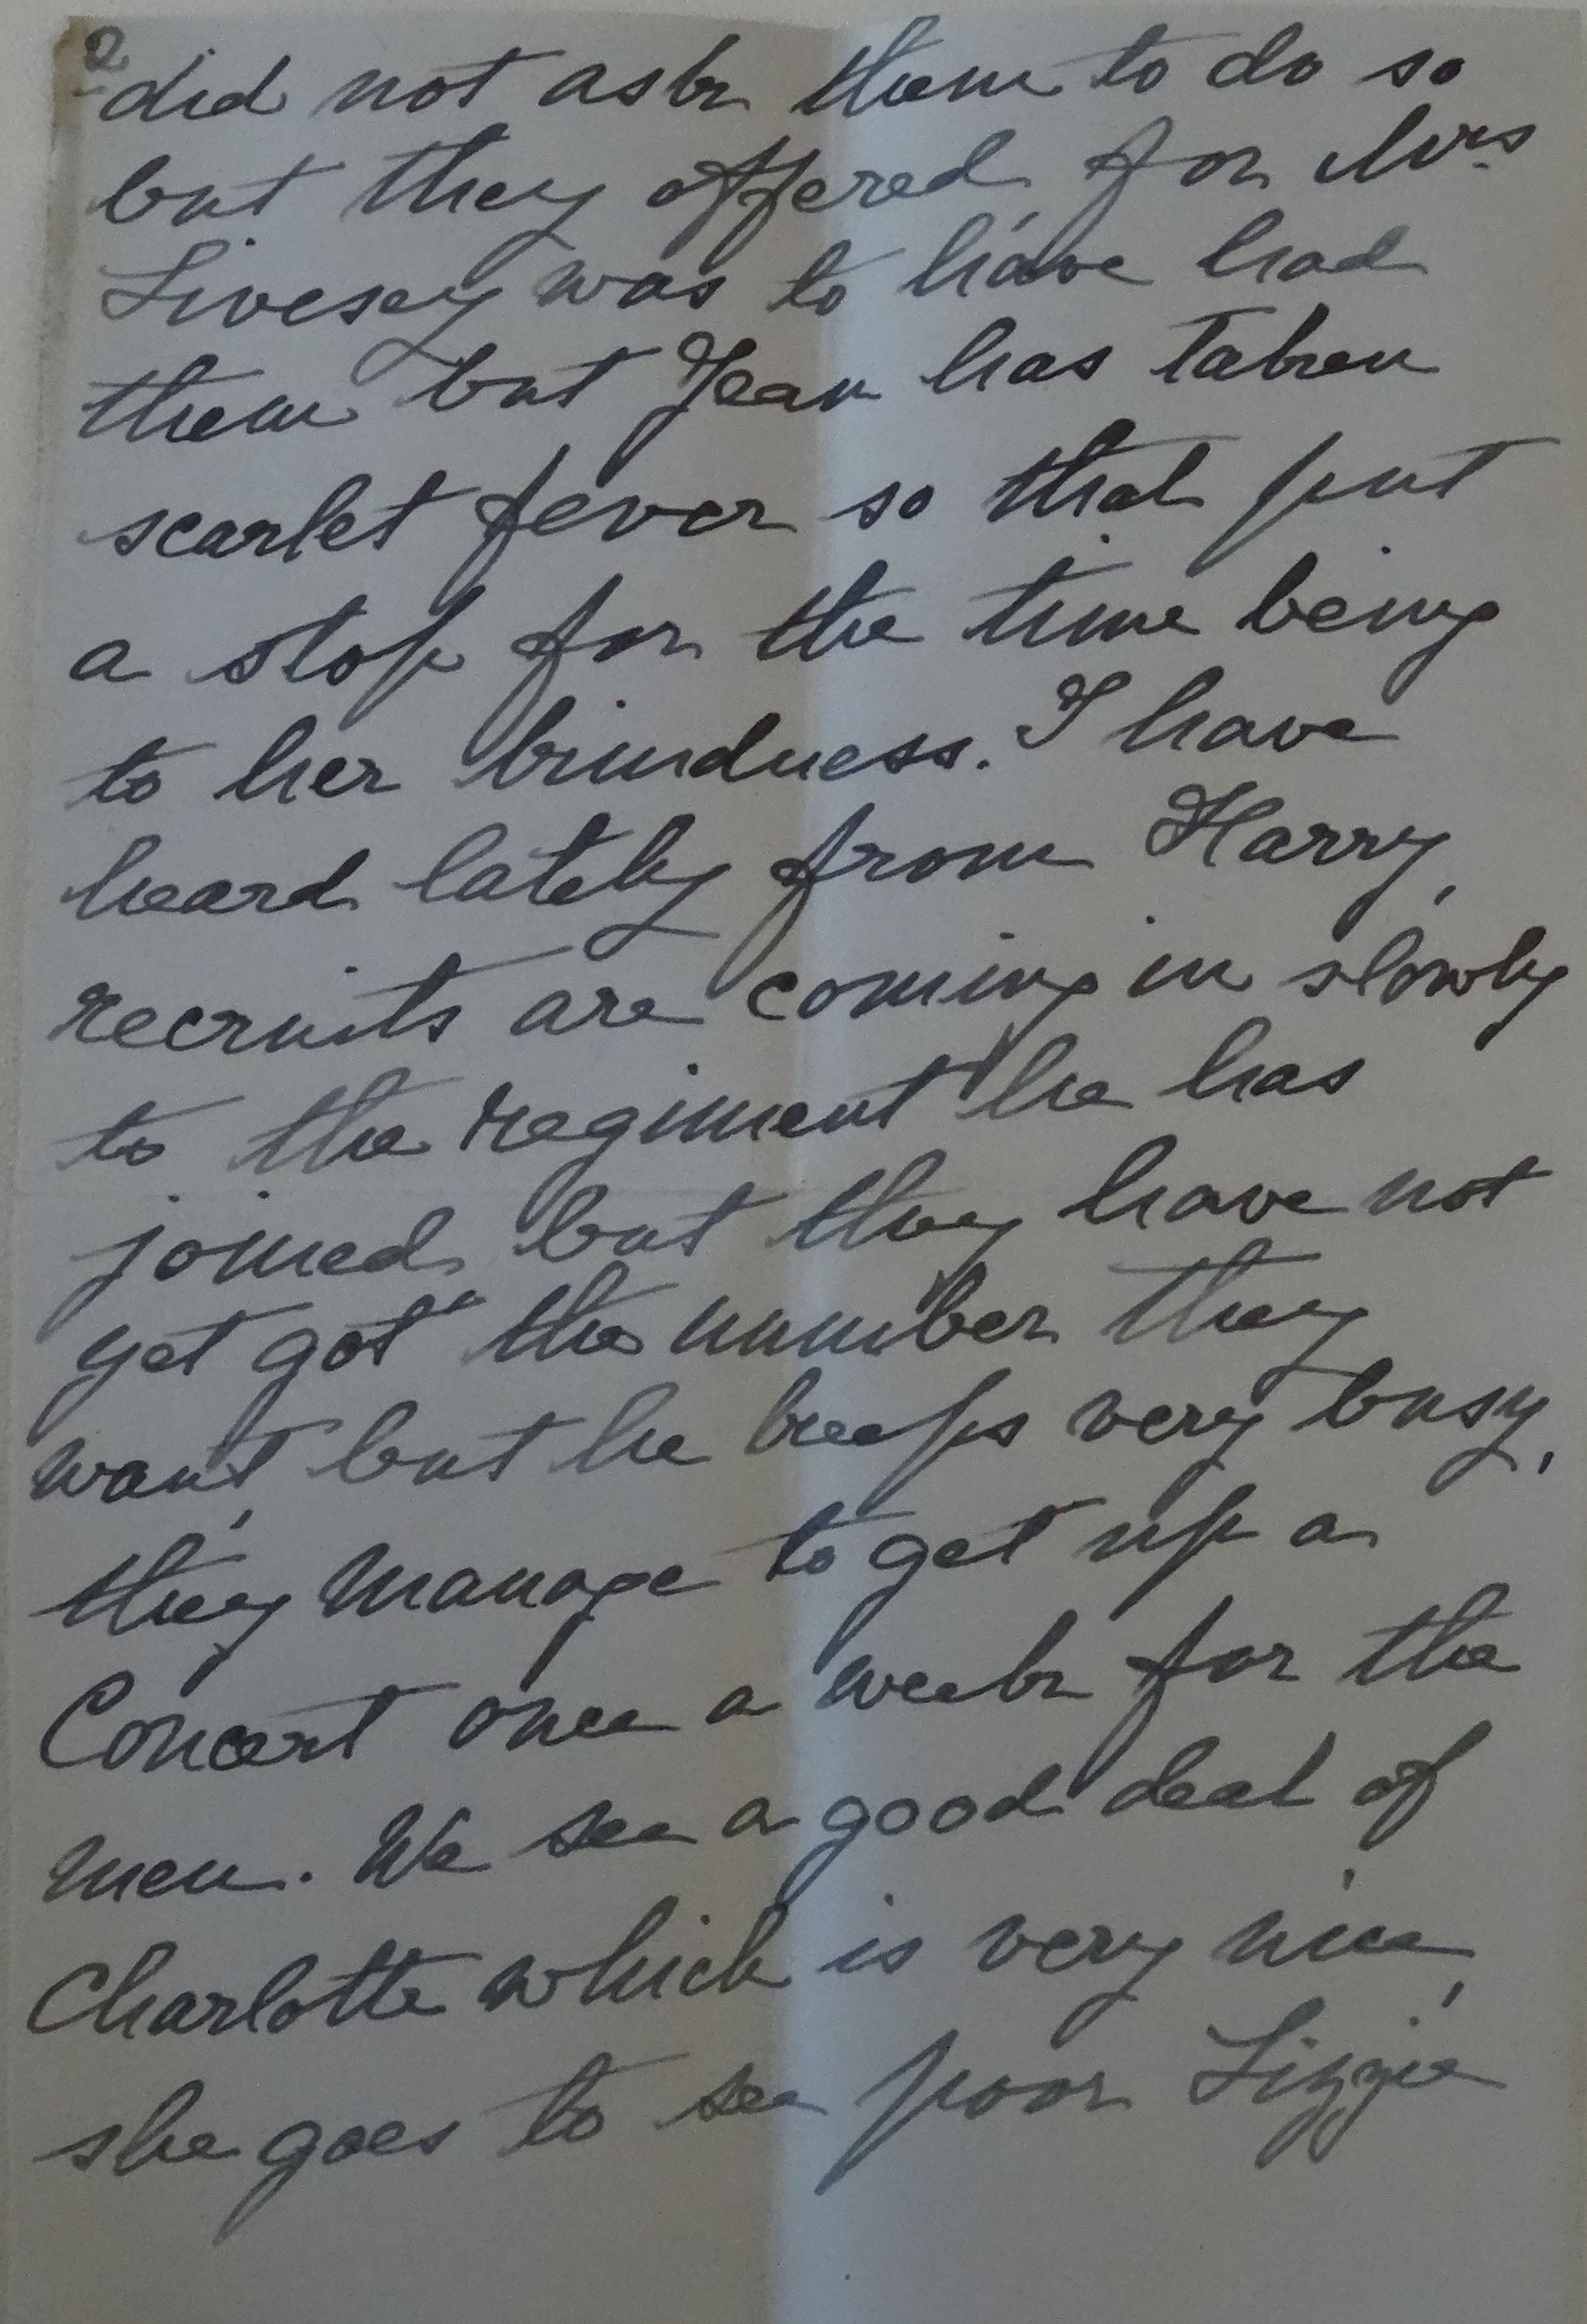 2
did not ask them to do so
but they offered for Mrs
Livesey was to have had
them but Jean has taken
scarlet fever so that put
a stop for the time being
to her kindness. I have
heard lately from Harry,
recruits are coming in slowly
to the regiment he has
joined but they have not
yet got the number they
want but he keeps very busy,
they manage to get up a
Concert once a week for the
men. We see a good deal of
Charlotte which is very nice,
she goes to see poor Lizzie